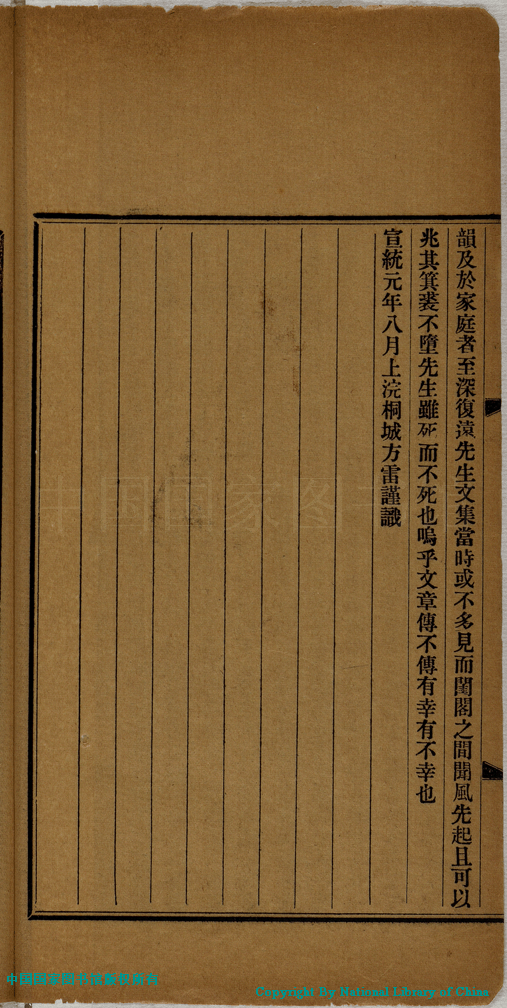 韻及於家庭者至深復遠先生文集當時或不多見而閨閣之間聞風先起且可以
兆其箕裘不墮先生雖死而不死也嗚乎文章傳不傳有幸有不幸也
宣統元年八月上浣桐城方雷謹識
中国国家图书馆版权所有
Copyright By National Library of China